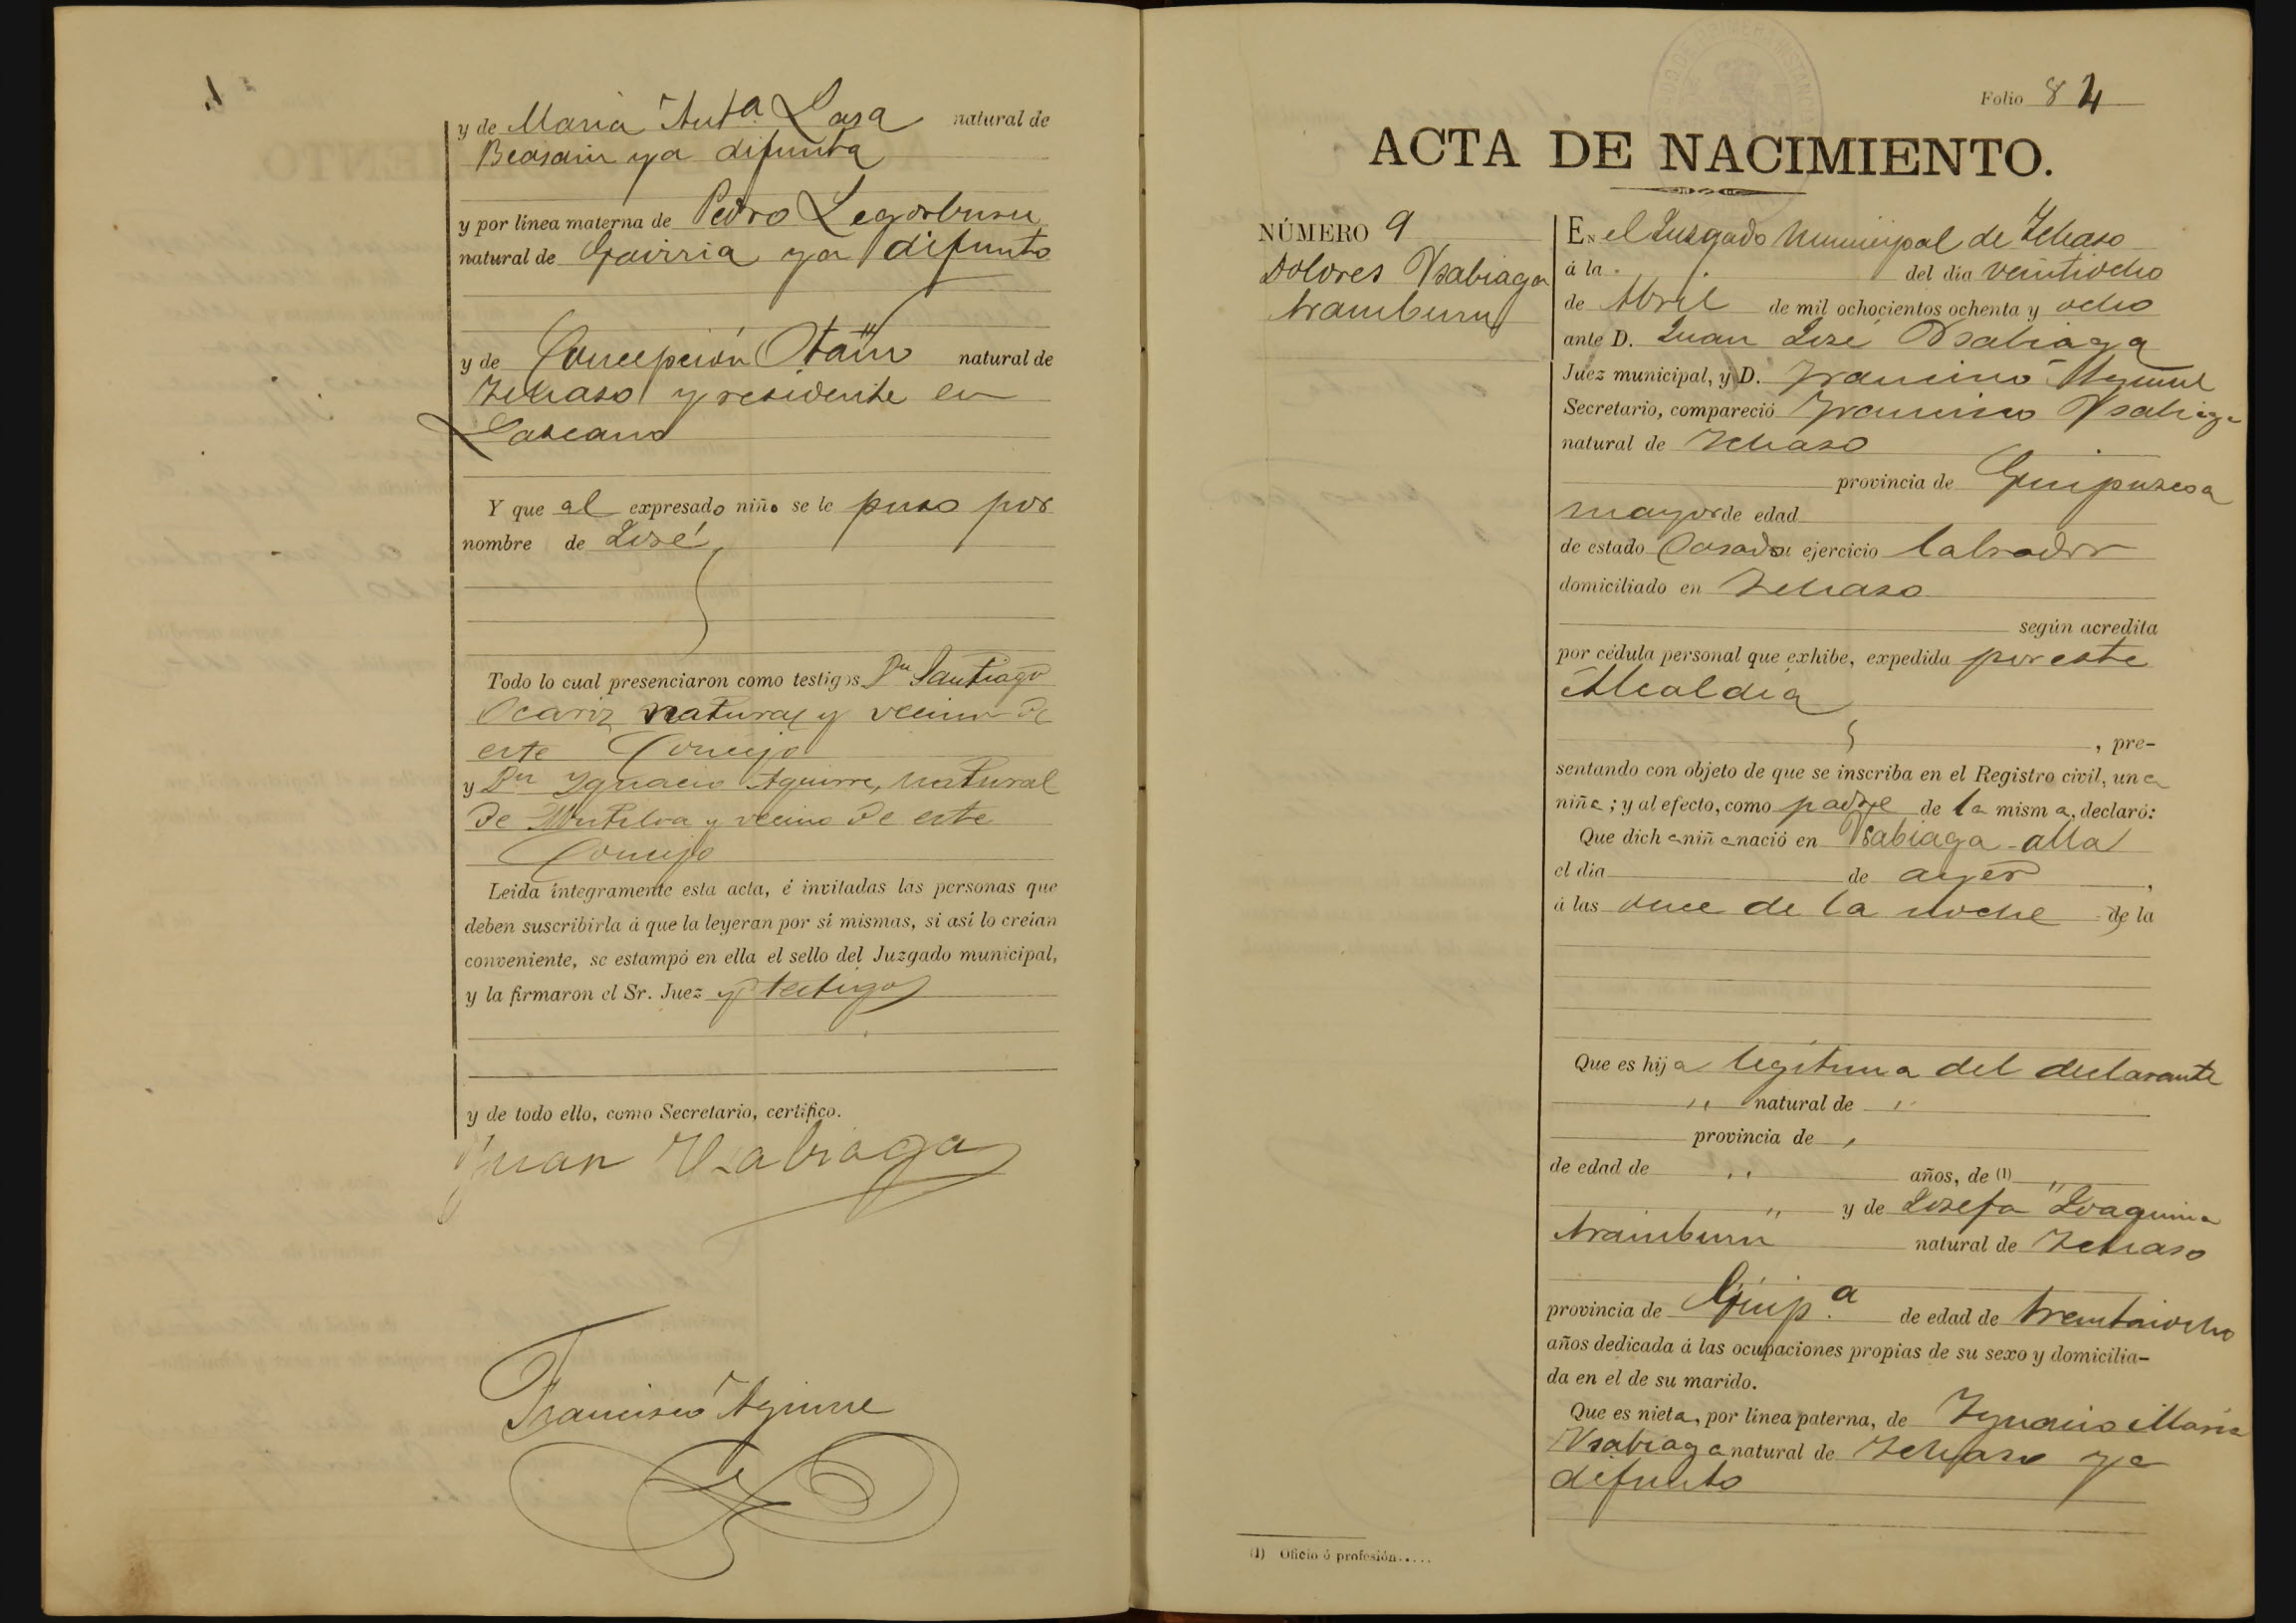 y de Maria Anta Lasa natural de
Beasain ya difunta
y por linea materna de Pedro Legorburu
natural de Gaviria ya difunto
y de Concepción Otaño natural de
Ichaso y residente en
Lazcano
Y que al expresado niño se le puso por
nombre de José
Todo lo cual presenciaron como testigos Dn Santiago
Ocariz natural y vecino de
este Concejo
y Dn Ygnacio Aguirre, natural
de Mutiloa y vecino de este
Concejo
Leida íntegramente esta acta, é invitadas las personas que
deben suscribirla á que la leyeran por sí mismas, si así lo creían
conveniente, se estampó en ella el sello del Juzgado municipal,
y la firmaron el Sr. Juez y testigos
y de todo ello, como Secretario, certifico.
Juan Ysabiaga
Francisco Aguirre
Folio 84
ACTA DE NACIMIENTO.
NÚMERO 9
Dolores Ysabiaga
Aramburu
En el Juzgado Municipal de Ichaso
á la del dia veintiocho
de Abril de mil ochocientos ochenta y ocho
ante D. Juan José Ysabiaga
Juez municipal, y D. Francisco Aguirre
Secretario, compareció Francisco Ysabiaga
natural de Ichaso
provincia de Guipuzcoa
mayor de edad
de estado Casado ejercicio labrador
domiciliado en Ichaso
según acredita
por cédula personal que exhibe, expedida por este
Alcaldia
, pre-
sentando con objeto de que se inscriba en el Registro civil, una
niña; y al efecto, como padre de la misma, declaró:
Que dicha niña nació en Ysabiaga-alla
el dia de ayer,
á las once de la noche de la
Que es hija legítima del declarante
" natural de "
provincia de "
de edad de " años, de (1) "
" y de Josefa Joaquina
Aramburu natural de Ichaso
provincia de Guipa. de edad de treintaiocho
años dedicada á las ocupaciones propias de su sexo y domicilia-
da en el de su marido.
Que es nieta, por linea paterna, de Ygnacio Maria
Ysabiaga natural de Ichaso ya
difunto
(1) Oficio ó profesión.....